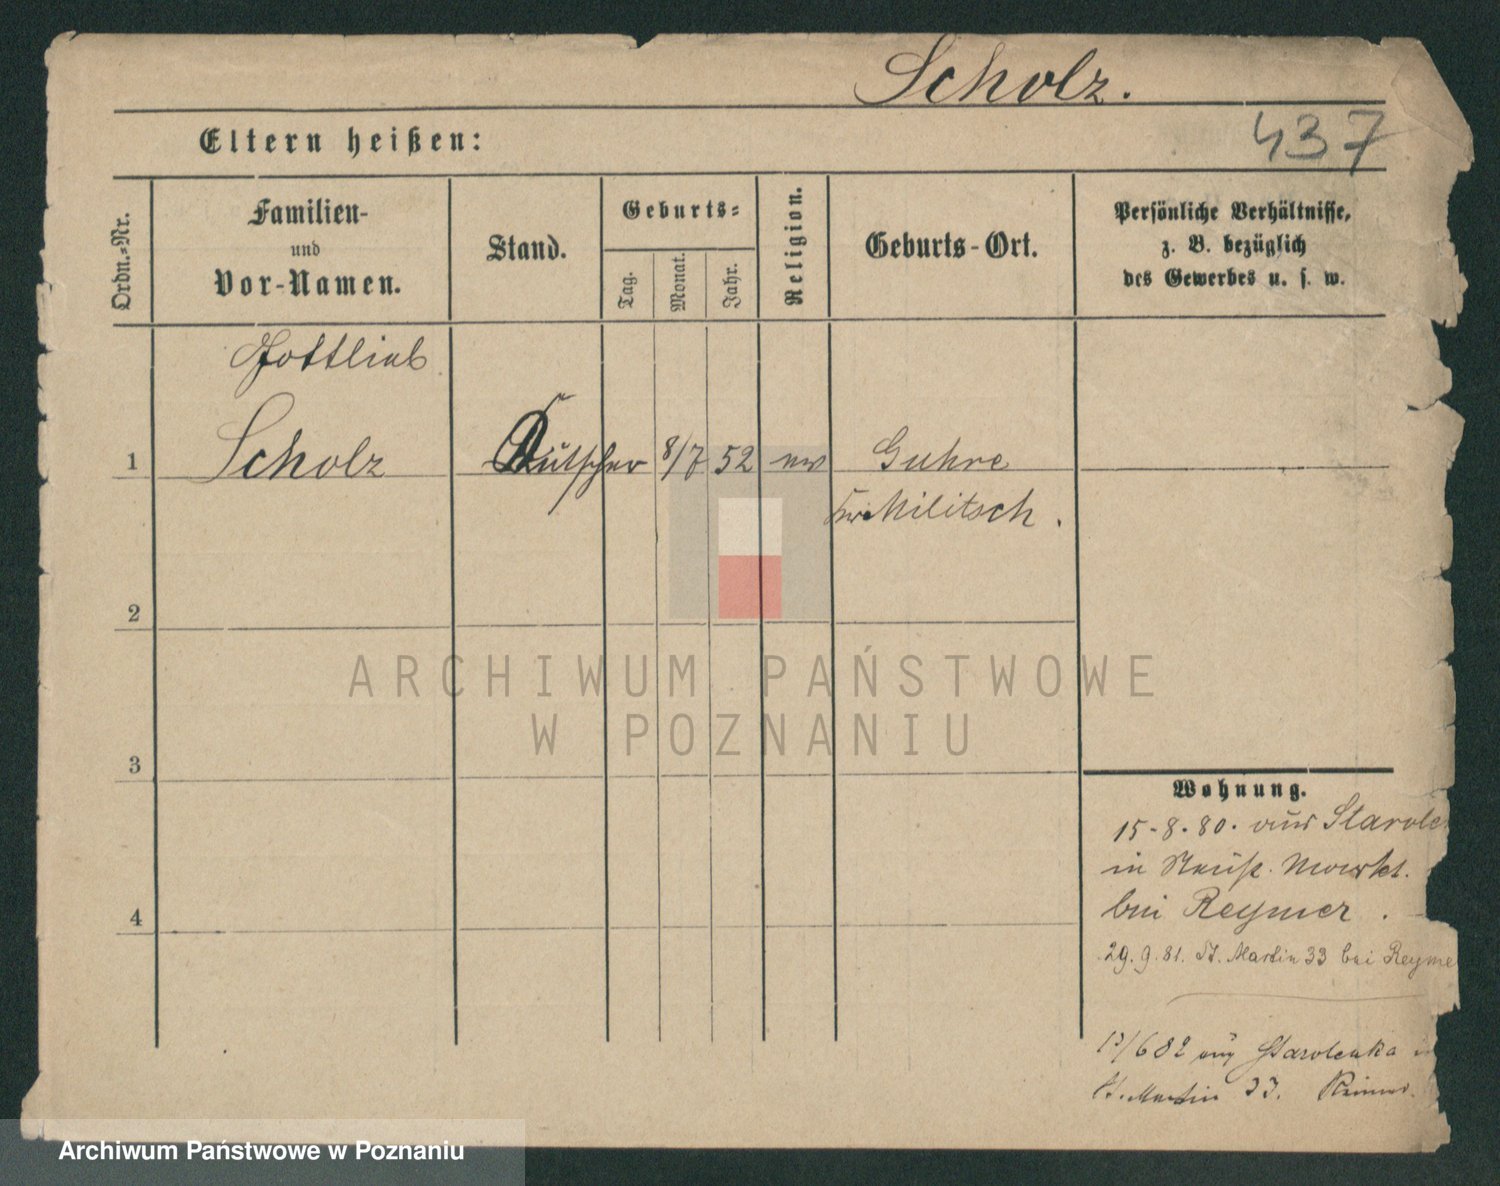 Scholz.
437
Eltern heißen:
Ordn.-Nr.
Familien-
und
Vor-Namen.
Stand.
Geburts-
Tag.
Monat.
Jahr.
Religion.
Geburts-Ort.
Persönliche Verhältnisse,
z. B. bezüglich
des Gewerbes u. s. w.
Gottlieb
1 Scholz Kutscher 8/7 52 ev Guhre
Militsch.
2
3
4
Wohnung.
15-8.80. aus Starole
in Markt.
bei Reymer.
29.9.81. St. Martin 33 bei Reyme
/6 82 Starolenka in
St. Martin 33.
ARCHIWUM PAŃSTWOWE
W POZNANIU
Archiwum Państwowe w Poznaniu